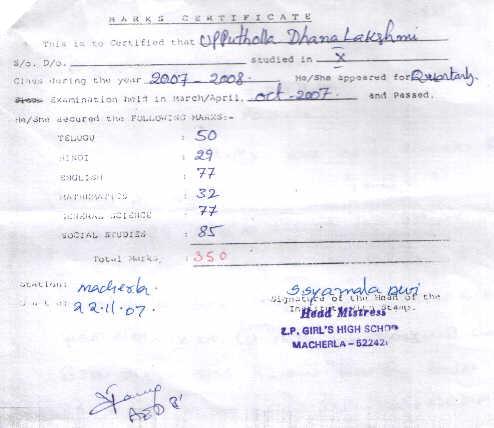 MARKS CERTIFICATE
This is to Certified that Upputholla Dhana Lakshmi
S/o. D/o. studied in X
Class during the year 2007 - 2008. He/She appeared for Quarterly.
Examination held in March/April, oct-2007. and Passed.
He/She secured the FOLLOWING MARKS:-
TELUGU : 50
HINDI : 29
ENGLISH : 77
MATHEMATICS : 32
GENERAL SCIENCE : 77
SOCIAL STUDIES : 85
Total Marks, : 350
Station: macherla.
22.11.07.
Signature of the Head of the
Institution with Stamp.
Head Mistress
Z.P. GIRL'S HIGH SCHOOL
MACHERLA - 52242